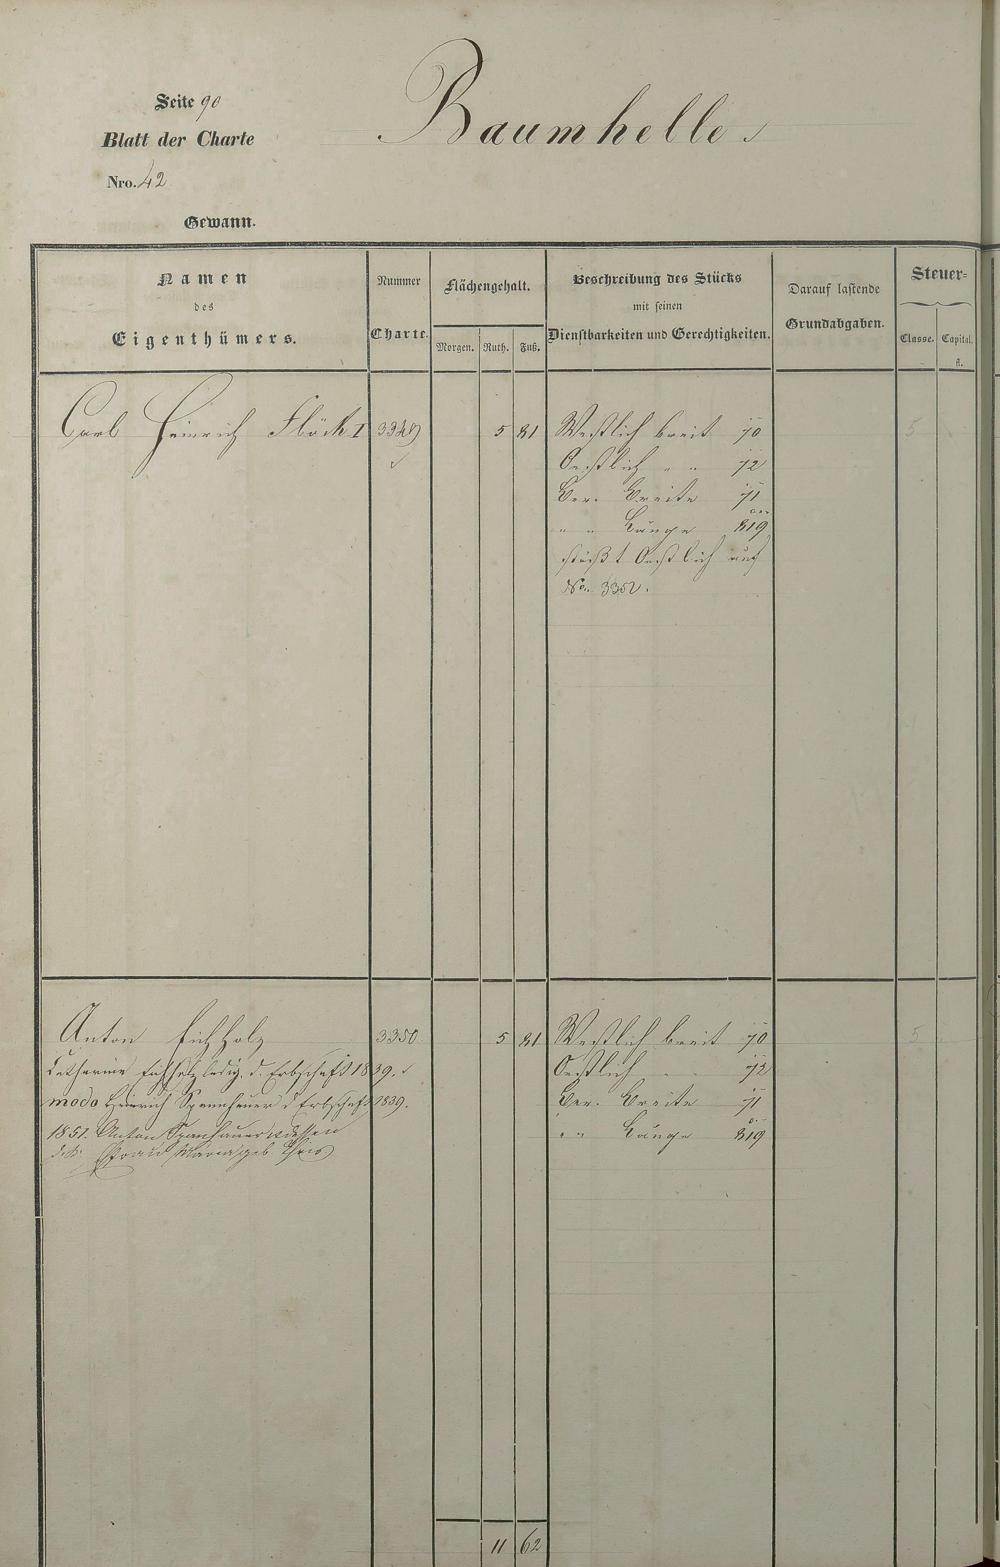 Seite 90
Blatt der Charte
Nro. 42
Baumhelle
Gewann.
Namen
des
Eigenthümers.
Nummer
Charte.
Flächengehalt.
Morgen. Ruth. Fuß.
Beschreibung des Stücks
mit seinen
Dienstbarkeiten und Gerechtigkeiten.
Darauf lastende
Grundabgaben.
Steuer-
Classe. Capital.
fl.
Carl Heinrich Flöck I 3349 5 81 Westlich breit 70 5
Oestlich " " 72
Ber. Breite 71
" " Länge 819
stößt Oestlich auf
No. 3352.
Anton Eichholz 3350 5 81 Westlich breit 70 5
Catharine Eichholz ledig. d. Erbschaft 1839. Oestlich 72
modo Heinrich Spanheuer d Erbschaft 1839. Ber. Breite 71
1851. Anton Spanhauer " " Länge 819
Frau Maria geb
11 62